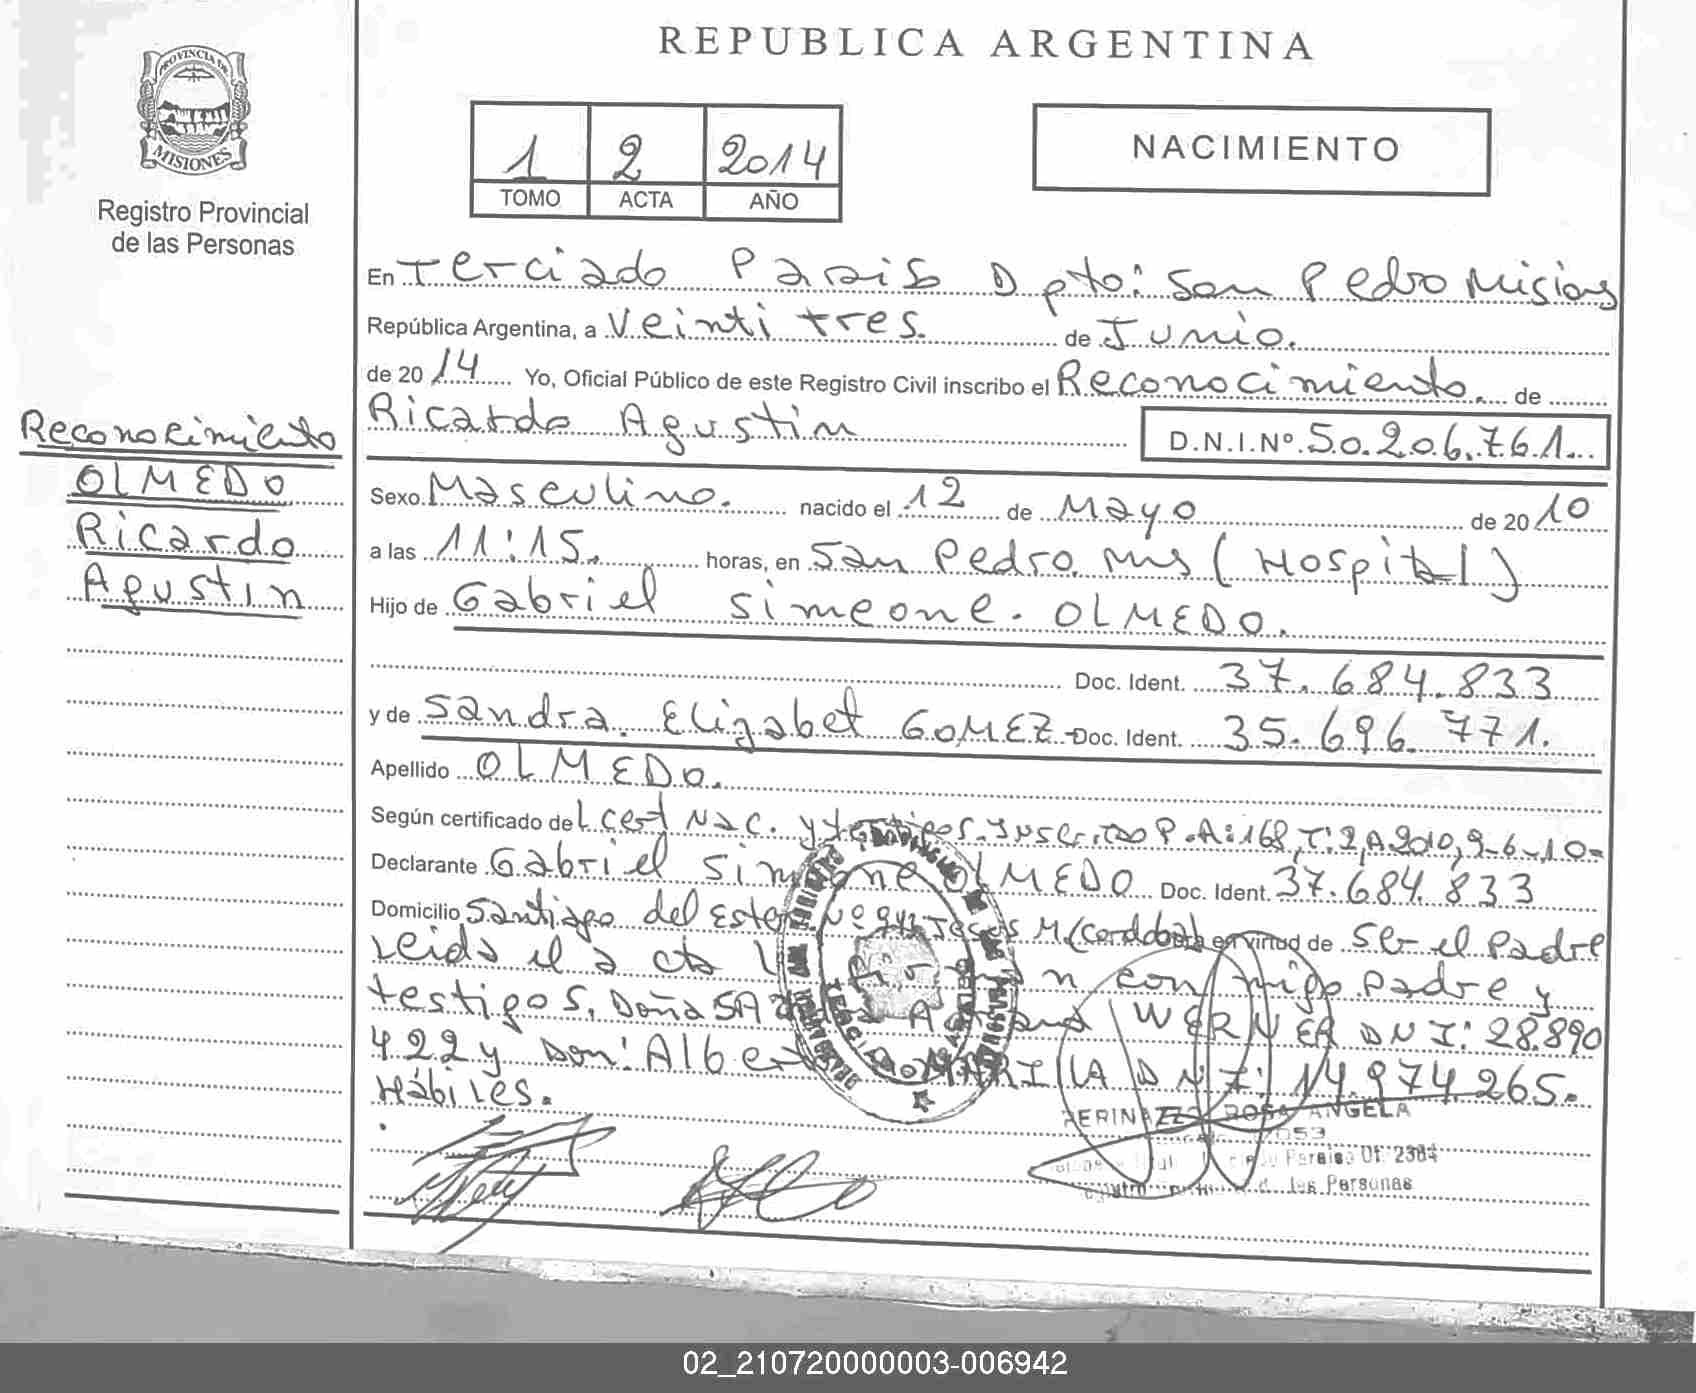 REPUBLICA ARGENTINA
PROVINCIA DE
MISIONES
Registro Provincial
de las Personas
1 2 2014
TOMO ACTA AÑO
NACIMIENTO
En Terciado Paraiso Dpto: San Pedro Misiones
República Argentina, a Veinti tres. de Junio.
de 2014 Yo, Oficial Público de este Registro Civil inscribo el Reconocimiento. de
Ricardo Agustin D.N.I.Nº 50.206.761
Reconocimiento
OLMEDO
Ricardo
Agustin
Sexo Masculino. nacido el 12 de Mayo de 2010
a las 11:15. horas, en San Pedro Mns (Hospital)
Hijo de Gabriel Simeone. OLMEDO.
Doc. Ident. 37.684.833
y de Sandra Elizabet GOMEZ- Doc. Ident. 35.696.771.
Apellido OLMEDO.
Según certificado del cert Nac. y testigos. Inscrito P.A:168, T:2, A 2010, 9-6-10=
Declarante Gabriel Simeone OLMEDO Doc. Ident. 37.684.833
Domicilio Santiago del Estero Nº Jesus M (Cordoba) en virtud de Ser el Padre
Leida el acta con migo Padre y
testigos, Doña WERNER DNI: 28.890
422 y Don: Alberto MARILLA DNI: 14.974.265.
Hábiles.
PERINAZZO ROSA ANGELA
Paraiso Of. 2384
las Personas
02_210720000003-006942